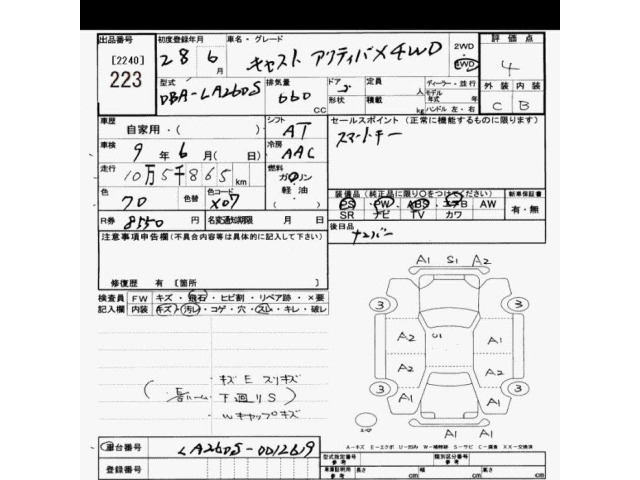 出品番号 初度登録年月 車名・グレード 評価点
[2240] 28年6月 キャスト アクティバX 4WD 2WD 4WD 4
223 型式 排気量 ドア 定員 人 ディーラー・並行
DBA-LA260S 660 CC 5 形状 積載 kg モデル年式 年式 ハンドル 左・右 外装 内装
C B
車歴 シフト セールスポイント (正常に機能するものに限ります)
自家用・( ) AT スマートキー
車検 9年6月(日) 冷房 AAC
走行 10万5千865km 燃料 ガソリン
色 色替 色コード 軽油 装備品 (純正品に限り○をつけてください) 新車保証書
70 X07 ・ PS PW ABS エアB AW 有・無
R券 8550 名変通知期限 月 日 SR ナビ TV カワ
注意事項申告欄 (不具合内容等は具体的に記入して下さい) 後日品 ナンバー
A1 S1 A2
修復歴 有 [箇所
検査員 FW キズ・飛石・ヒビ割・リペア跡・×要
記入欄 内装 キズ・汚レ・コゲ・穴・スレ・キレ・破レ
3 3
A2 U1 A1
A2 A2
キズE スリキズ
下廻りS
Wキャップキズ
3 3
A1 A1
A-キズ E-エクボ U-凹み W-補修跡 S-サビ C-腐食 XX-交換済
車台番号 LA260S-0012619
登録番号
型式指定番号 参考 類別区分番号 参考
車庫証明用 参考 長さ cm 幅 cm 高さ cm